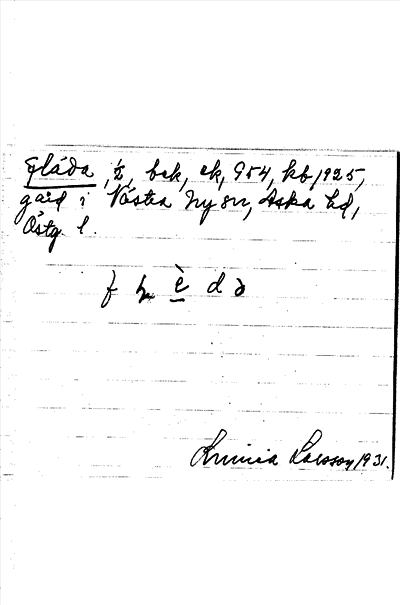 Fläda, ½, bek, ek, 954, kb, 1925,
gård i Västra Ny sn, Aska hd,
Östg. l.
Linnéa Larsson 1931.